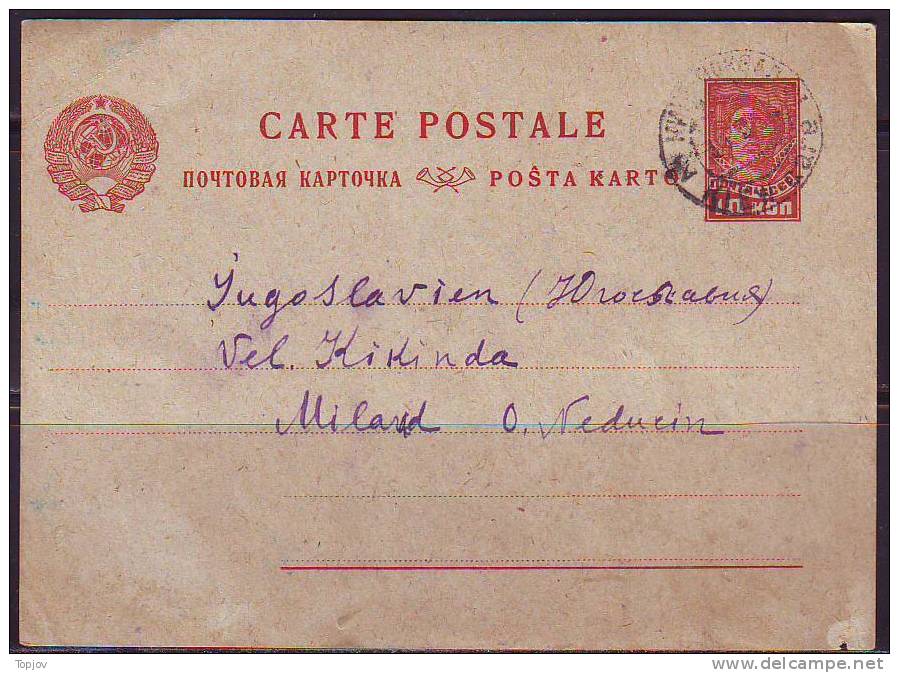 CARTE POSTALE
ПОЧТОВАЯ КАРТОЧКА POŜTA KARTO
ПОЧТА СССР
10 КОП
Jugoslavien (Югославия)
Vel. Kikinda
Miland O. Neducin
Topjov
www.delcampe.net